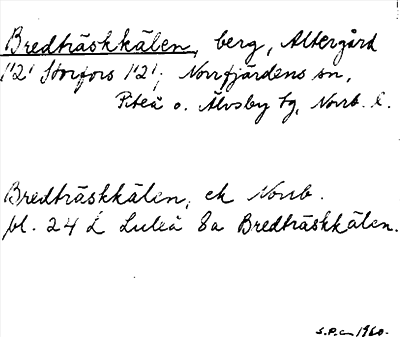 Bredträskkälen, berg, Altergård
1'2' Storfors 1'2', Norrfjärdens sn,
Piteå o. Älvsby tg, Norrb. l.
Bredträskkälen, ek Norrb.
bl. 24 L Luleå 8a Bredträskkälen.
1960.